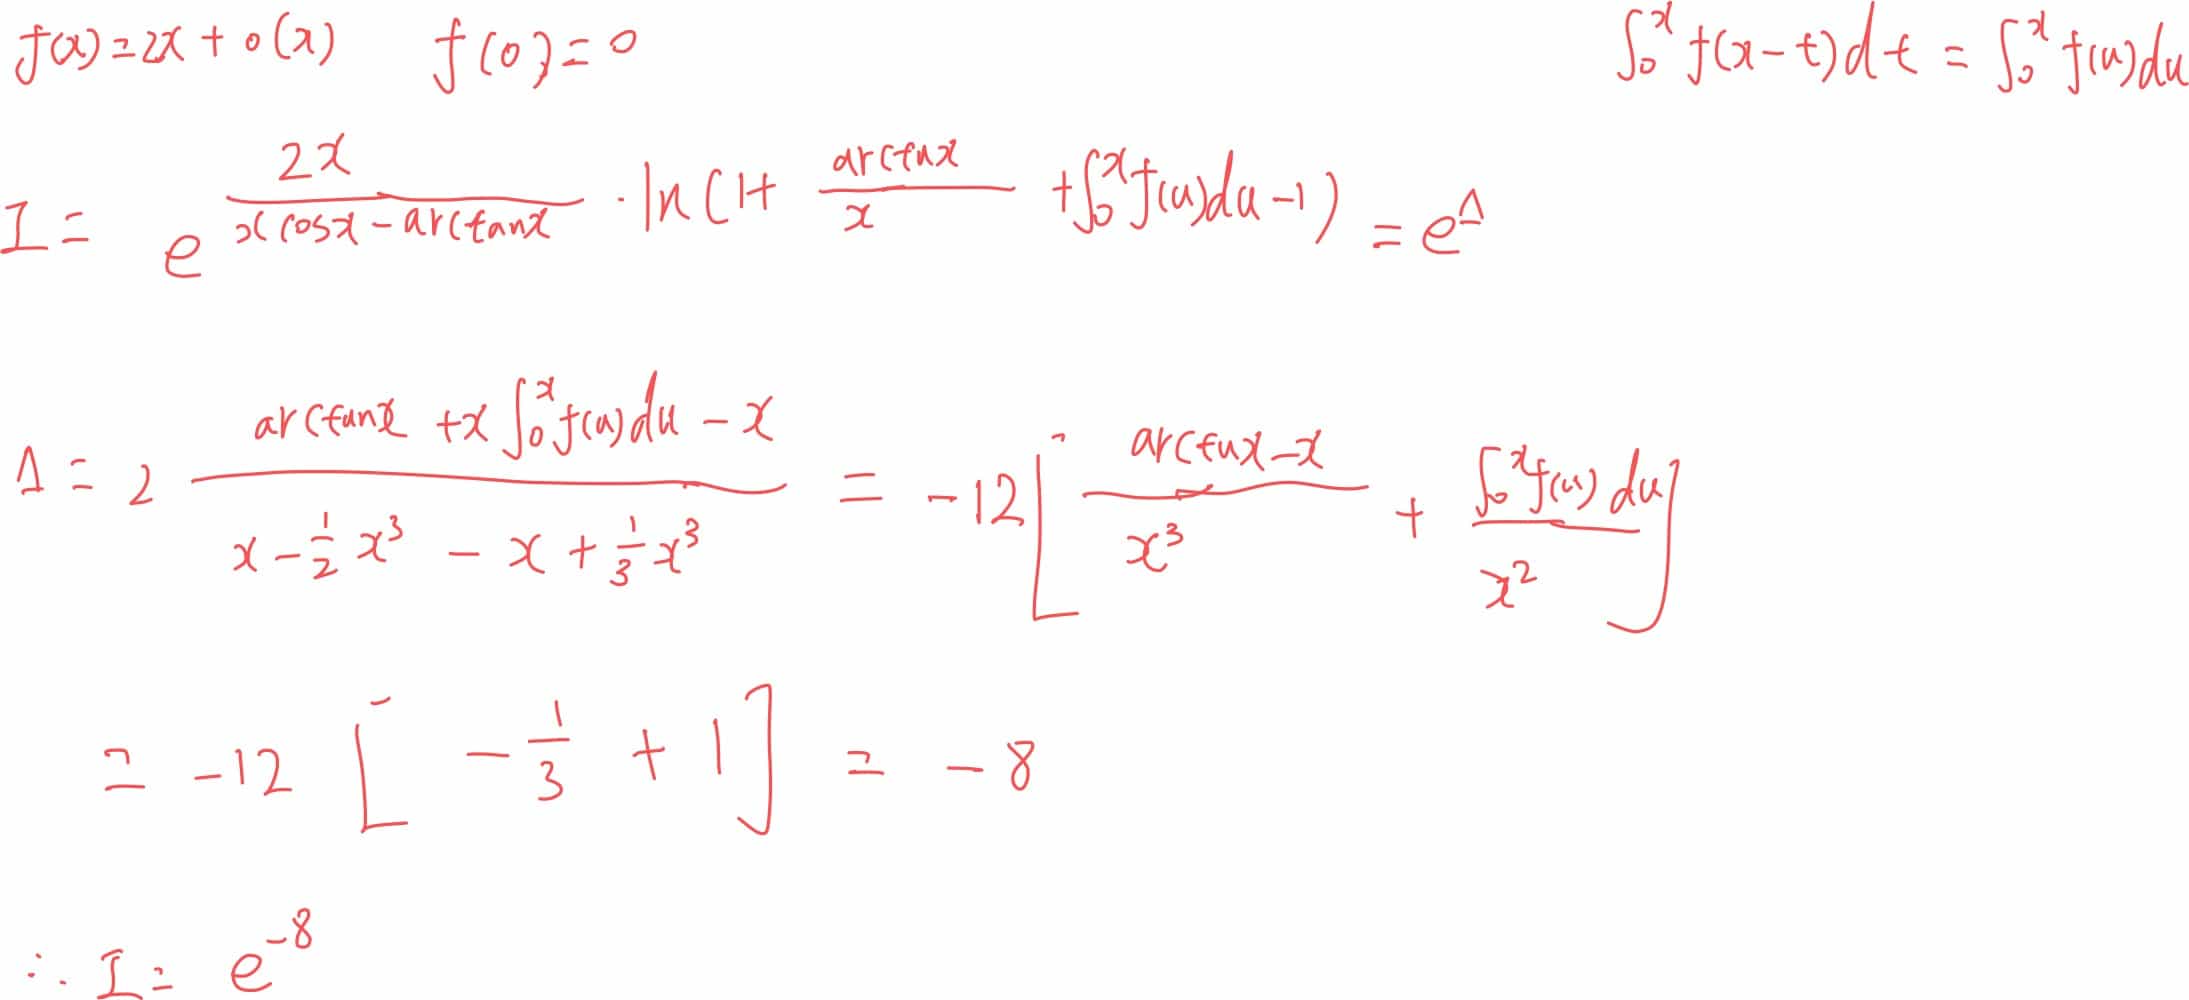 f(x)=2x+o(x) f(0)=0 ∫₀ˣ f(x-t)dt = ∫₀ˣ f(u)du
I = e^{2x/(x cosx - arctanx) · ln(1+ arctnx/x + ∫₀ˣ f(u)du - 1)} = e^Δ
Δ = 2 (arctanx + x∫₀ˣ f(u)du - x)/(x - 1/2 x³ - x + 1/3 x³) = -12[(arctnx - x)/x³ + ∫₀ˣ f(u)du/x²]
= -12 [ -1/3 + 1] = -8
∴ I = e⁻⁸